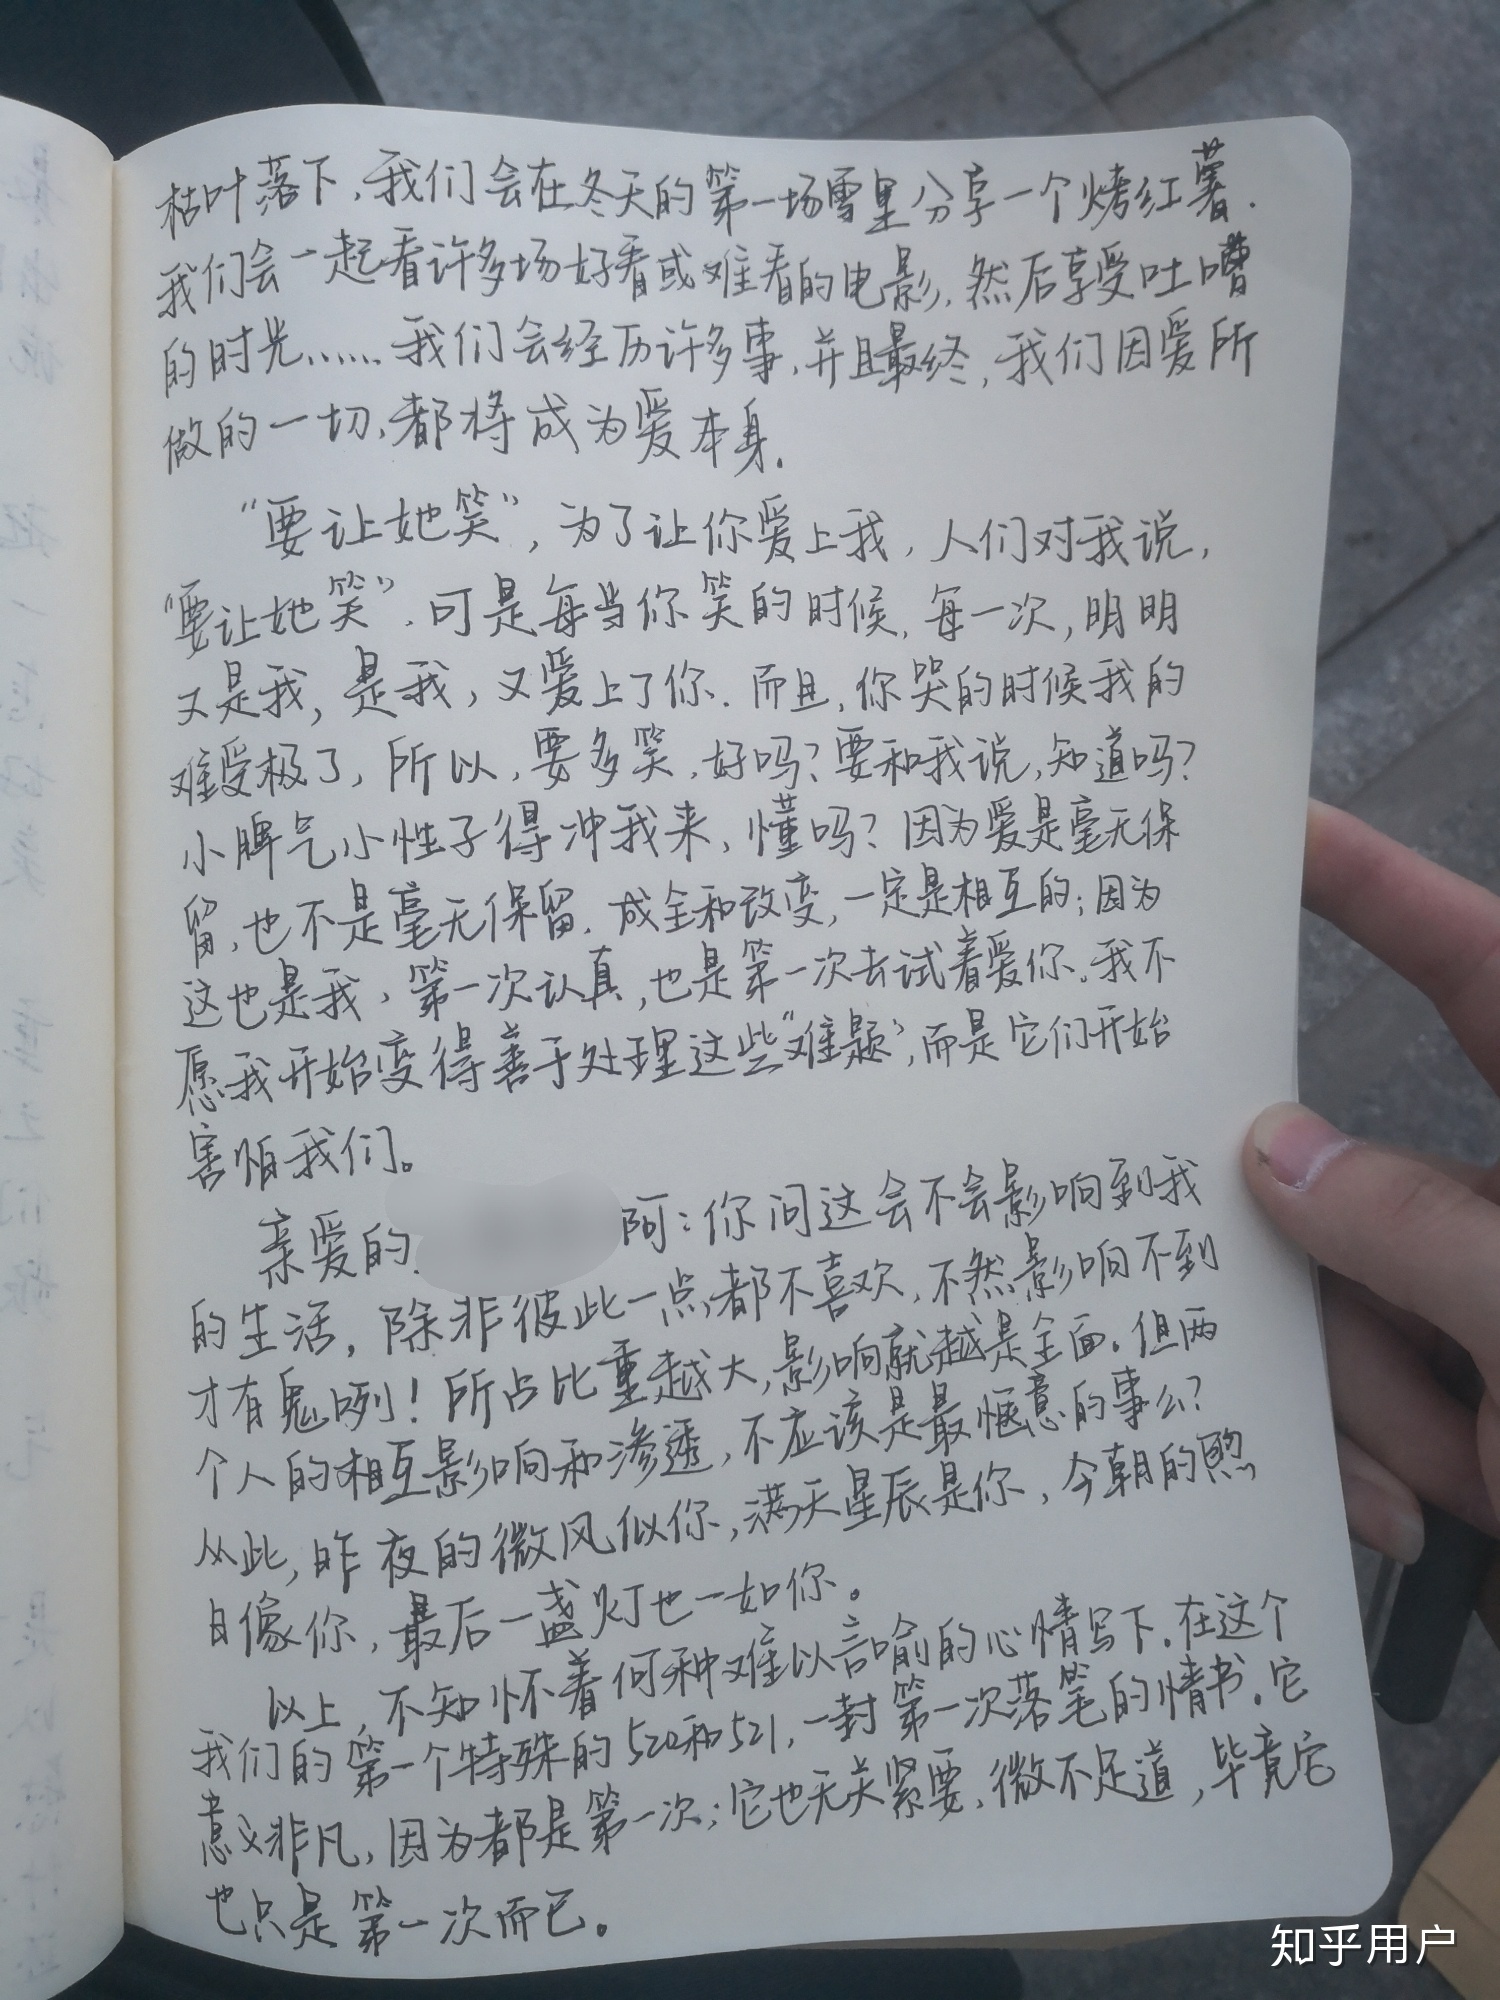 枯叶落下,我们会在冬天的第一场雪里分享一个烤红薯.
我们会一起看许多场好看或难看的电影,然后享受吐嘈
的时光……我们会经历许多事,并且最终,我们因爱所
做的一切,都将成为爱本身.
“要让她笑”,为了让你爱上我,人们对我说,
“要让她笑”.可是每当你笑的时候,每一次,明明
又是我,是我,又爱上了你.而且,你哭的时候我的
难受极了,所以,要多笑,好吗?要和我说,知道吗?
小脾气小性子得冲我来,懂吗?因为爱是毫无保
留,也不是毫无保留.成全和改变,一定是相互的;因为
这也是我,第一次认真,也是第一次去试着爱你.我不
愿我开始变得善于处理这些“难题”,而是它们开始
害怕我们。
亲爱的 阿:你问这会不会影响到我
的生活,除非彼此一点都不喜欢,不然影响不到
才有鬼咧!所占比重越大,影响就越是全面.但两
个人的相互影响和渗透,不应该是最惬意的事么?
从此,昨夜的微风似你,满天星辰是你,今朝的煦
日像你,最后一盏灯也一如你。
以上,不知怀着何种难以言喻的心情写下.在这个
我们的第一个特殊的520和521,一封第一次落笔的情书.它
意义非凡,因为都是第一次;它也无关紧要,微不足道,毕竟它
也只是第一次而已。
知乎用户